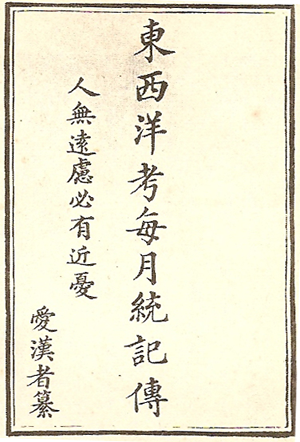 東西洋考每月統記傳
人無遠慮必有近憂
愛漢者纂